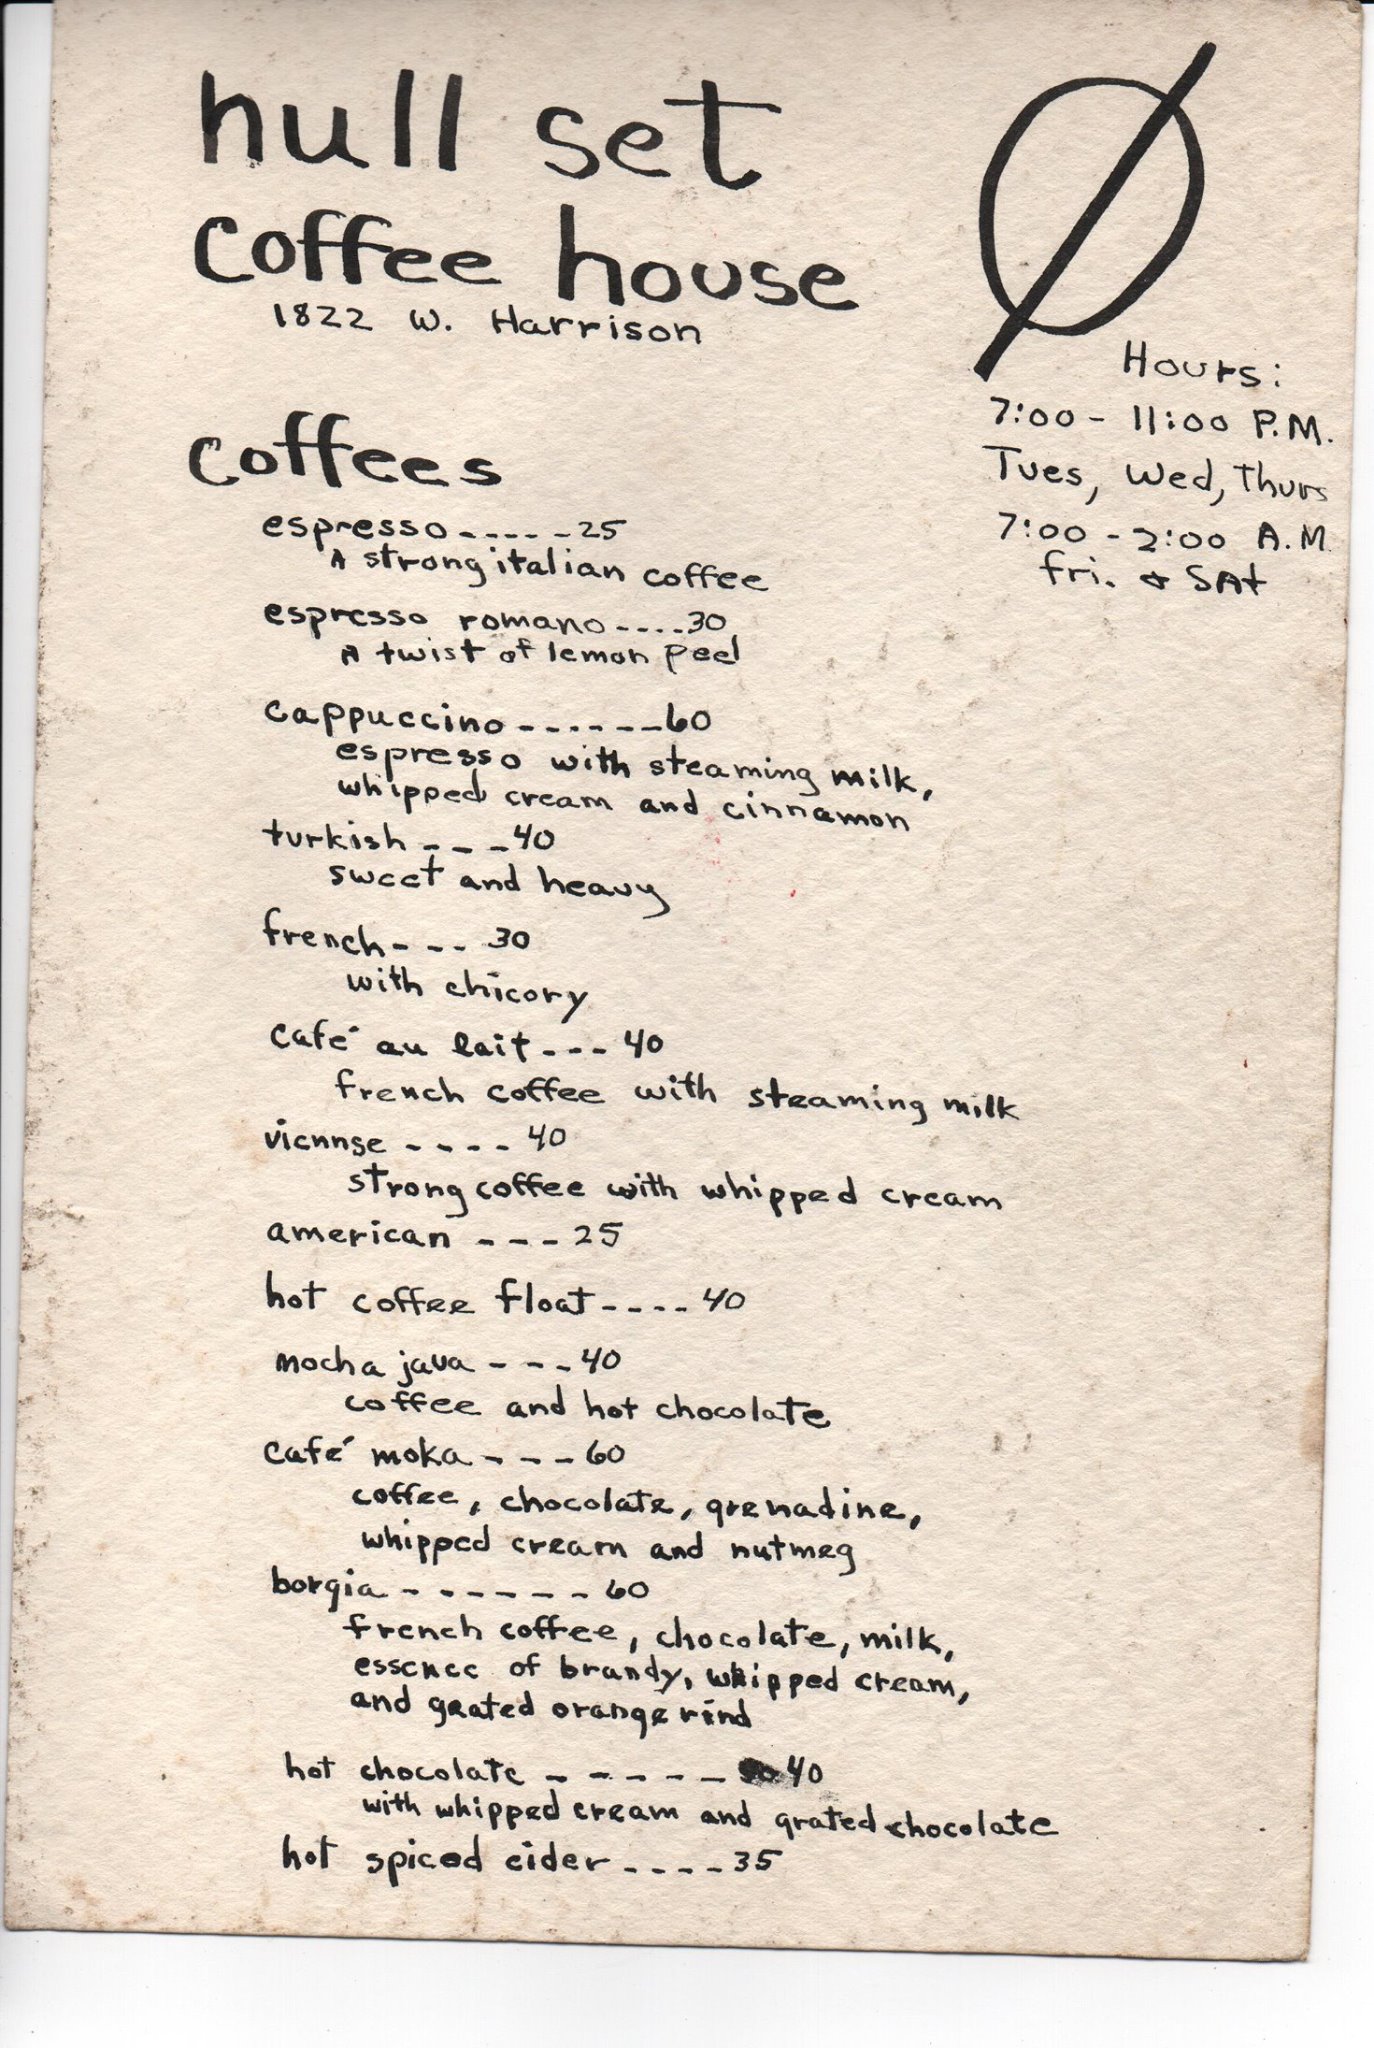 null set
Coffee house
1822 W. Harrison
Ø
Hours:
7:00 - 11:00 P.M.
Tues, Wed, Thurs
7:00 - 2:00 A.M.
fri. & SAt
Coffees
espresso ----- 25
A strong italian coffee
espresso romano ---- 30
A twist of lemon peel
cappuccino ------ 60
espresso with steaming milk,
whipped cream and cinnamon
turkish --- 40
sweet and heavy
french --- 30
with chicory
café au lait --- 40
french coffee with steaming milk
viennse ---- 40
strong coffee with whipped cream
american --- 25
hot coffee float ---- 40
mocha java --- 40
coffee and hot chocolate
café moka ---- 60
coffee, chocolate, grenadine,
whipped cream and nutmeg
borgia ------ 60
french coffee, chocolate, milk,
essence of brandy, whipped cream,
and grated orange rind
hot chocolate ----- 40
with whipped cream and grated chocolate
hot spiced cider ---- 35